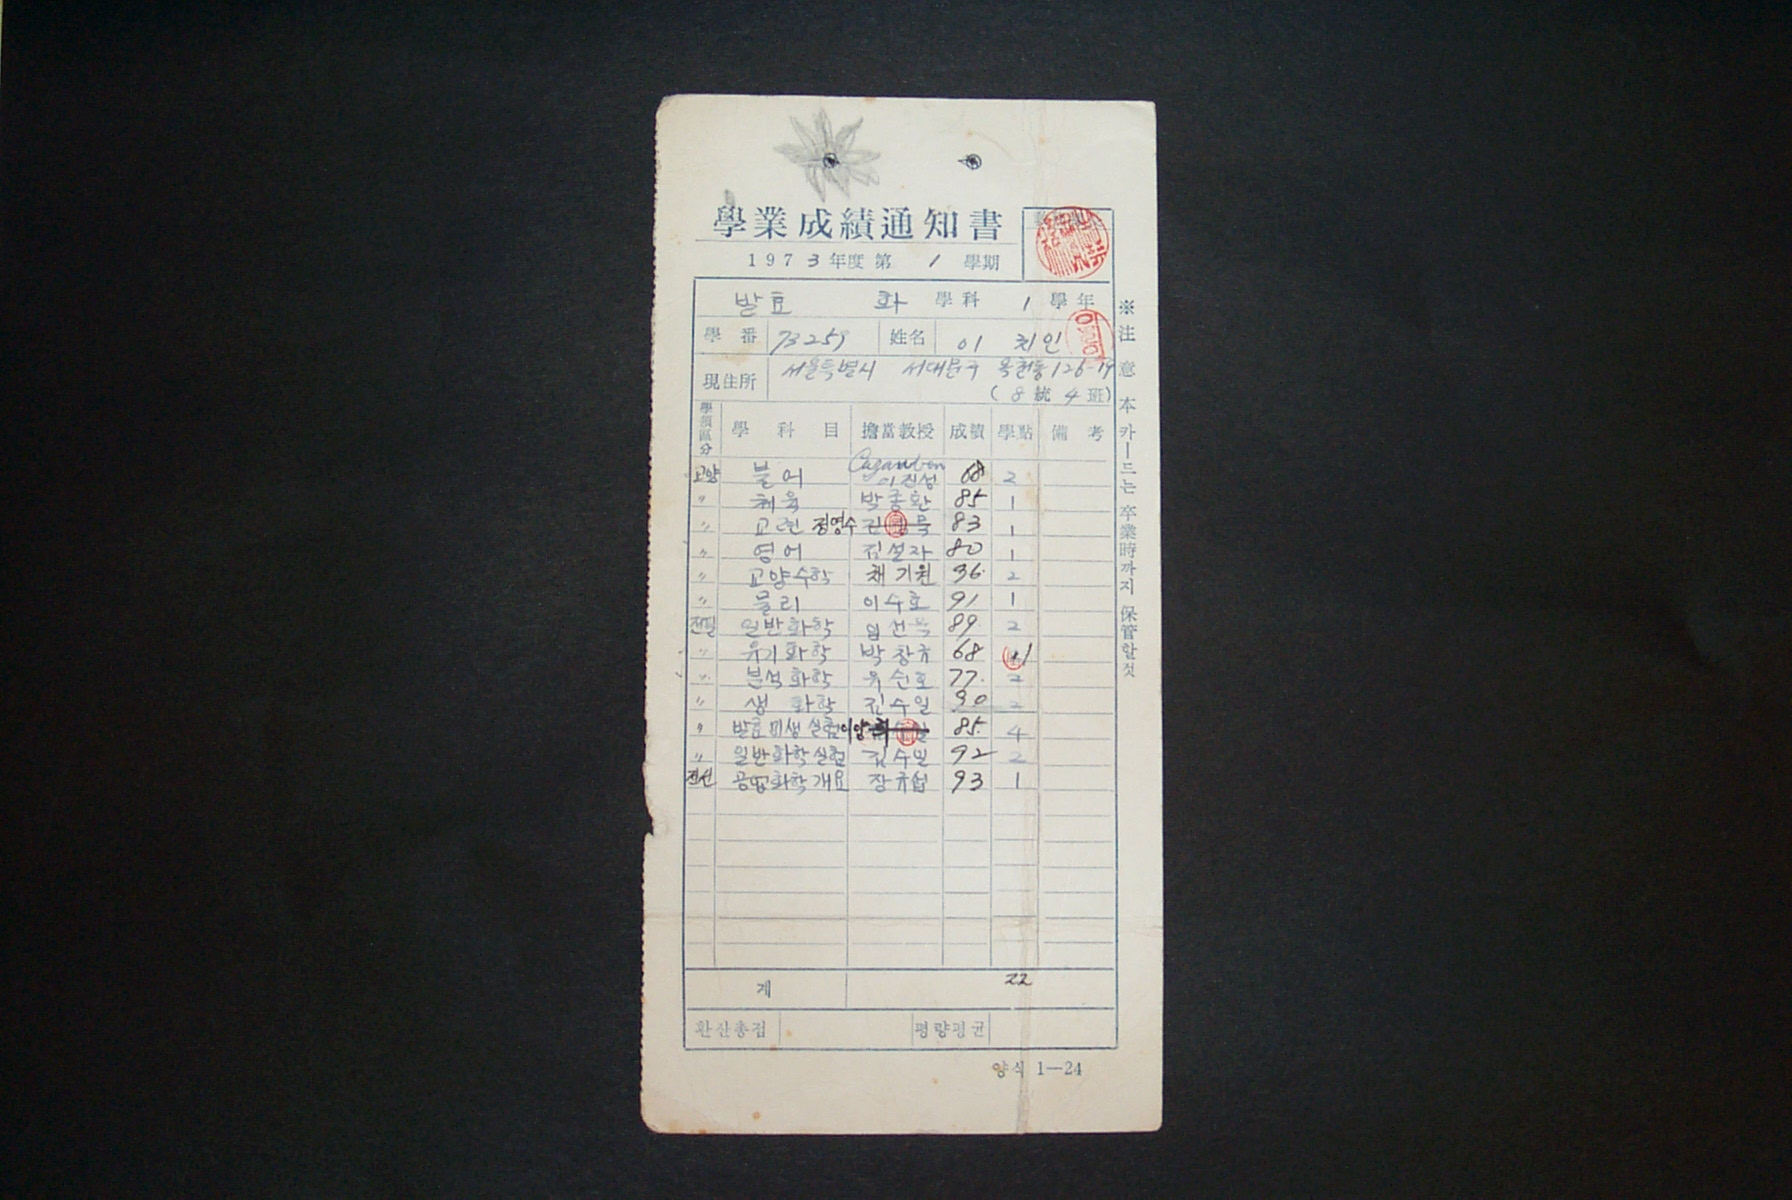 學業成績通知書
1973年度 第 1 學期
발효 화 學科 1 學年
學番 73259 姓名 이 치인
現住所 서울특별시 서대문구 옥천동 126-19
(8統 4班)
學領區分 學科目 擔當教授 成績 學點 備考
교양 불어 이진성 68 2
〃 체육 박종환 85 1
〃 교련 정영수 83 1
〃 영어 김설자 80 1
〃 교양수학 채기원 96 2
〃 물리 이수호 91 1
전필 일반화학 89 2
〃 유기화학 박창규 68 1
〃 분석화학 유순호 77 2
〃 생화학 김수일 90 2
〃 발효미생실험 85 4
〃 일반화학실험 김수일 92 2
전선 공업화학개요 장규섭 93 1
계 22
환산총점 평량평균
양식 1—24
※注意 本 카ー드는 卒業時까지 保管할것